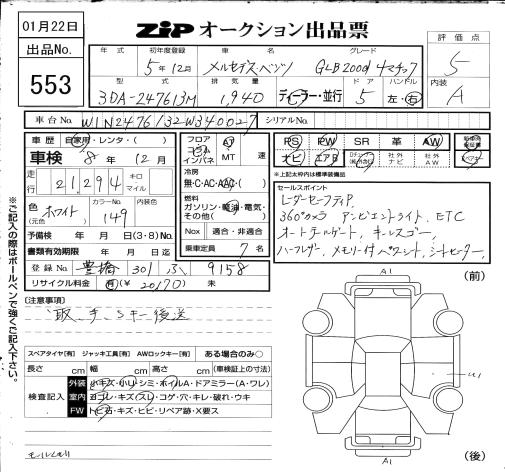 01月22日
ZiP オークション出品票
出品No.
553
年式 初年度登録 車名 グレード
5年12月 メルセデス・ベンツ GLB200d 4マチック
型式 排気量 ドア ハンドル
3DA-247613M 1,940 ディーラー・並行 5 左・右
評価点
5
内装
A
車台No. W1N2476132W340027 シリアルNo.
車歴 自家用・レンタ・( )
車検 8年 12月
走行 21,294 キロ マイル
色(元色) ホワイト カラーNo. 149
予備検 年 月 日(3・8)No.
書類有効期限 年 月 日迄
登録No. 豊橋 301 ふ 9158
リサイクル料金 有(¥20170) 未
フロア コラム インパネ AT MT 速
冷房 無・C・AC・AAC・( )
燃料 ガソリン・軽油・電気・その他( )
Nox 適合・非適合
乗車定員 7名
PS PW SR 革 AW
ナビ エアB 社外ナビ 社外AW
※上記太枠内は標準装備品
セールスポイント
レーダーセーフティP、
360°カメラ アンビエントライト、ETC
オートテールゲート、キーレスゴー、
ハーフレザー、メモリー付パワーシート、シートヒーター、
(注意事項)
取、手、Sキー後送
スペアタイヤ[有] ジャッキ工具[有] AWロックキー[有] ある場合のみ○
長さ cm 幅 cm 高さ cm (車検証上の寸法)
検査記入
外装 小キズ・小リ・シミ・ホイルA・ドアミラー(A・ワレ)
室内 ヨゴレ・キズ(スレ)・コゲ・穴・キレ・破れ・ウキ
FW トビ石・キズ・ヒビ・リペア跡・X要ス
※ご記入の際はボールペンで強くご記入下さい。
A1
(前)
U1
A1
(後)